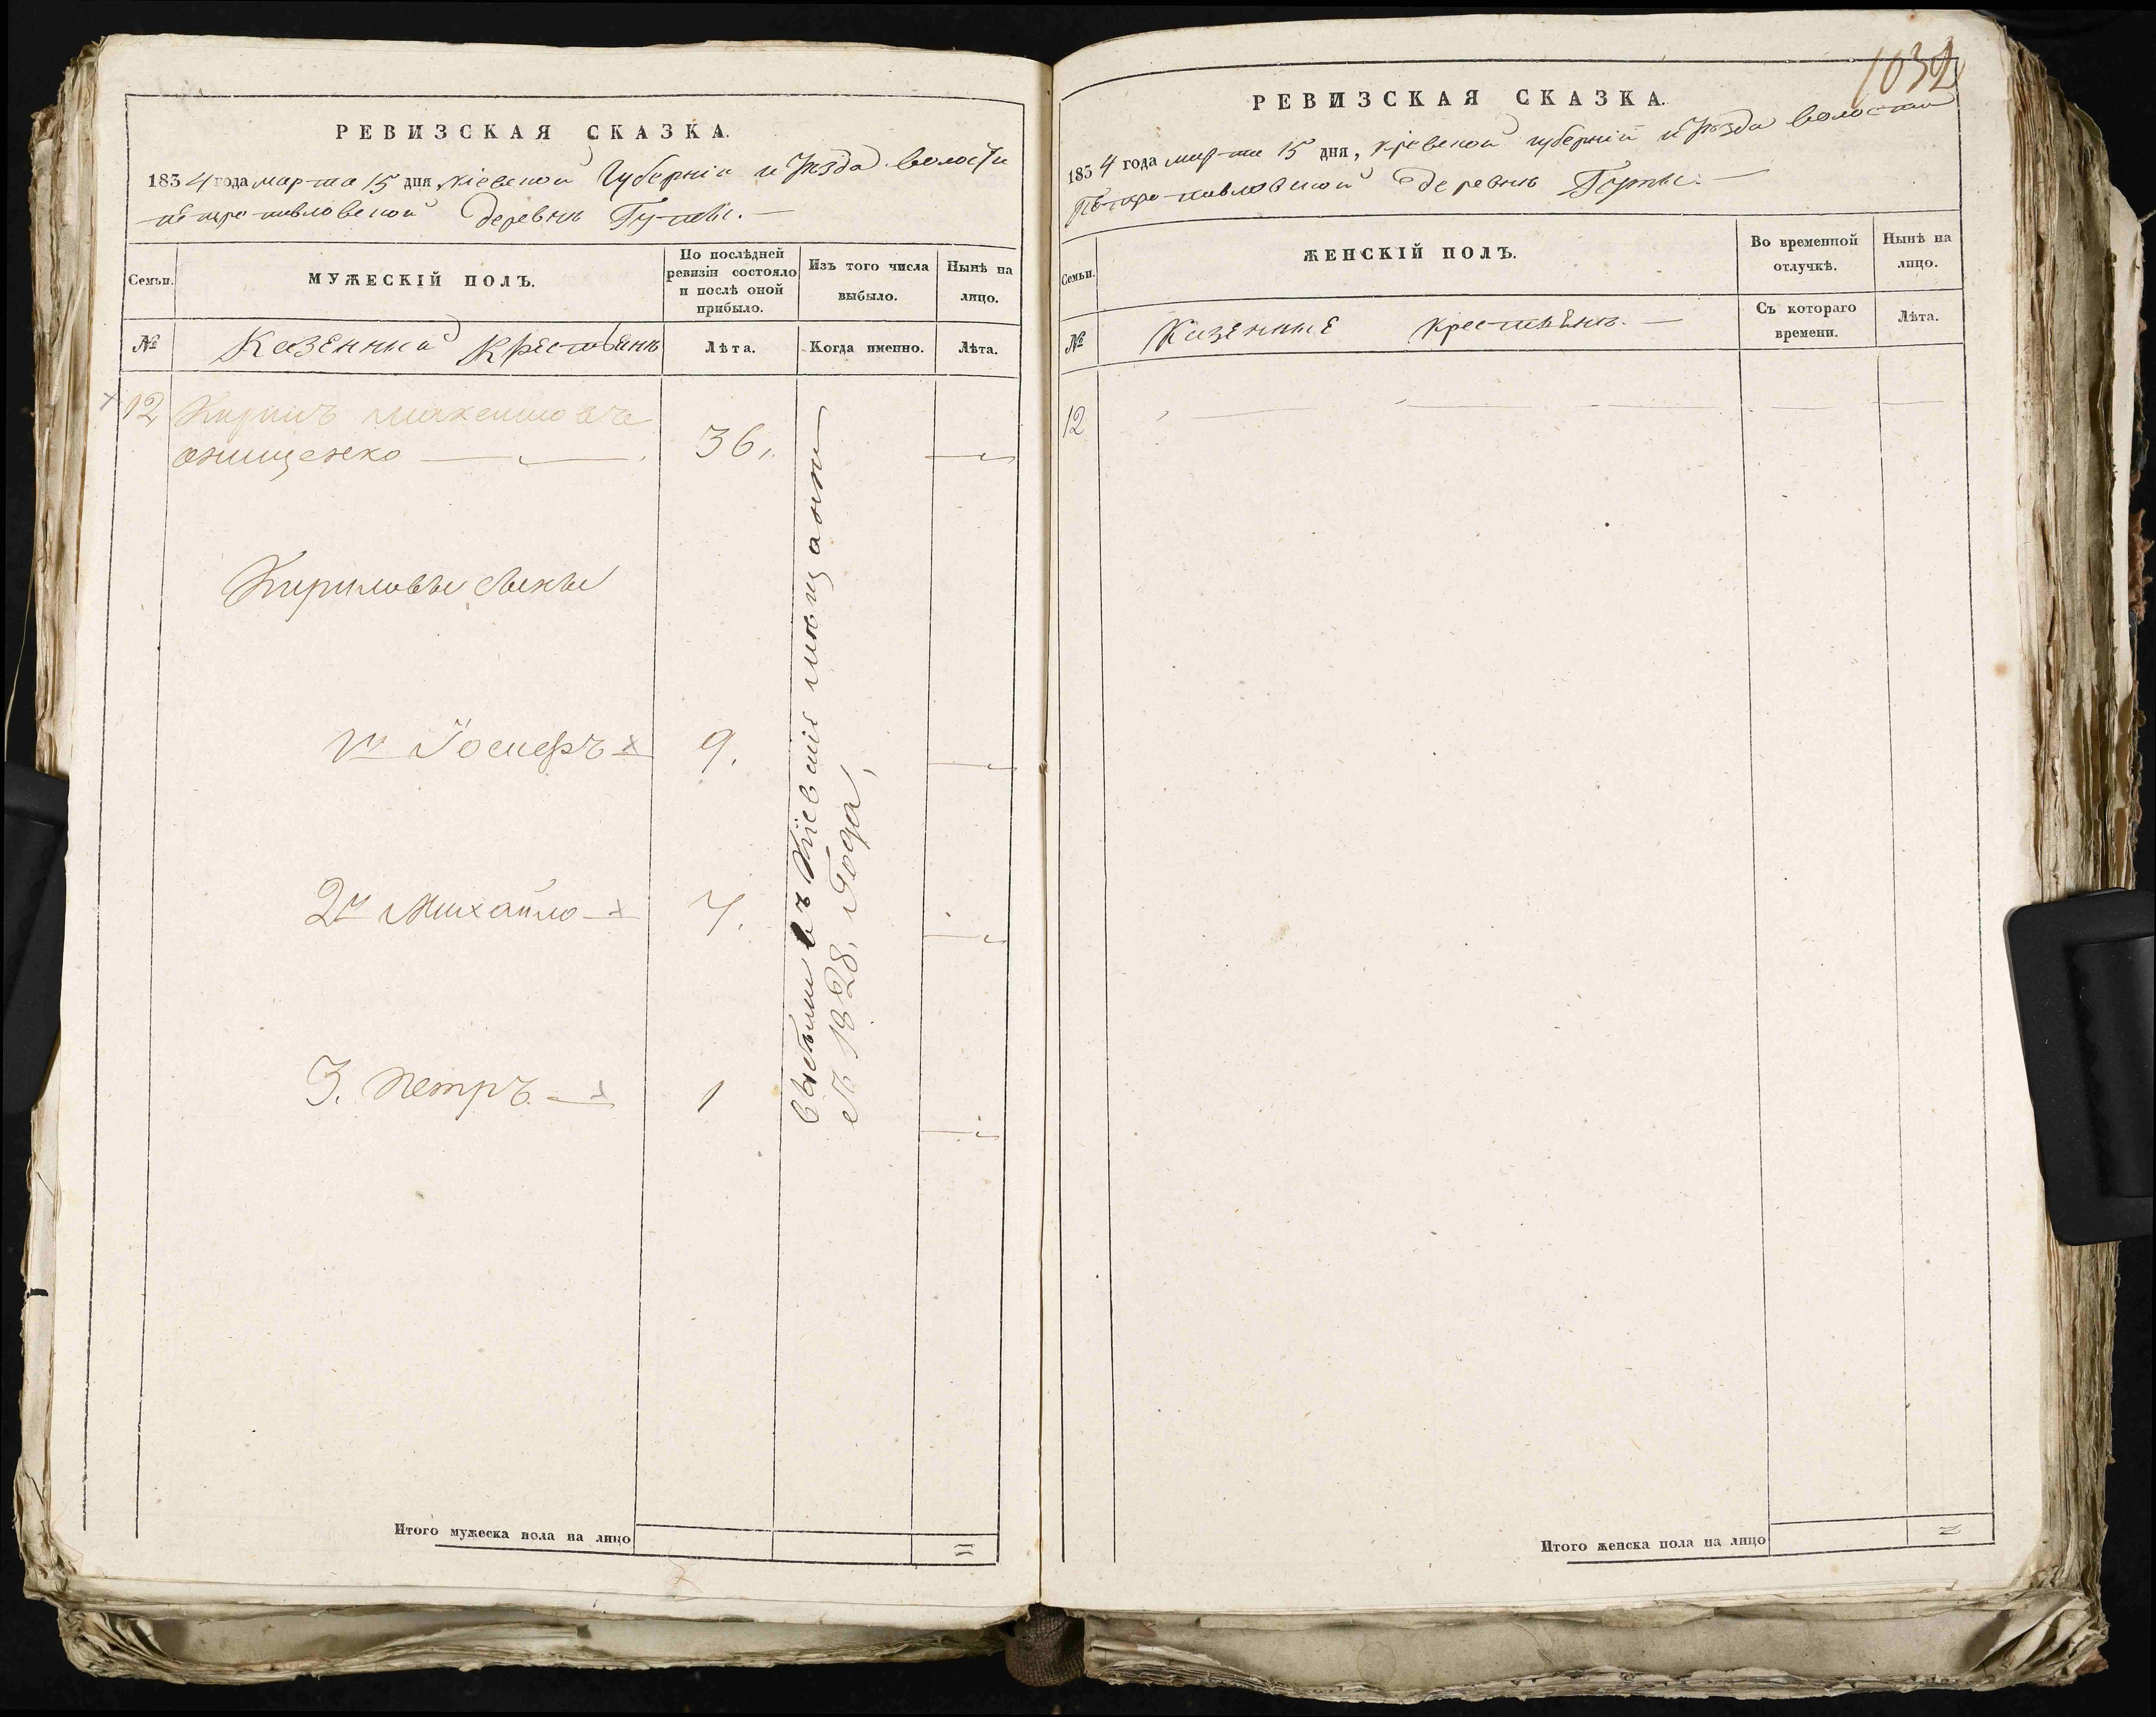 РЕВИЗСКАЯ СКАЗКА.
1834 года марта 15 дня Кіевской Губерніи и уѣзда волости
петро павловской деревнѣ Гуты.
Семьи.
МУЖЕСКІЙ ПОЛЪ.
По послѣдней ревизіи состояло и послѣ оной прибыло.
Изъ того числа выбыло.
Нынѣ на лицо.
№
Казенный Крестьянъ
Лѣта.
Когда именно.
Лѣта.
12 Кирилъ Максимовъ
онищенко 36.
Кириловы сыны
1й Іосифъ 9.
2й Михайло 7.
3. Петръ 1
выбыли въ Кіевскія мѣщани
съ 1828, Года,
Итого мужеска пола на лицо
1032
РЕВИЗСКАЯ СКАЗКА.
1834 года марта 15 дня, Кіевской губерніи и уѣзда волости
Петро-павловской деревнѣ Гуты.
Семьи.
ЖЕНСКІЙ ПОЛЪ.
Во временной отлучкѣ.
Нынѣ на лицо.
№
Казенные крестьянъ.
Съ котораго времени.
Лѣта.
12
Итого женска пола на лицо